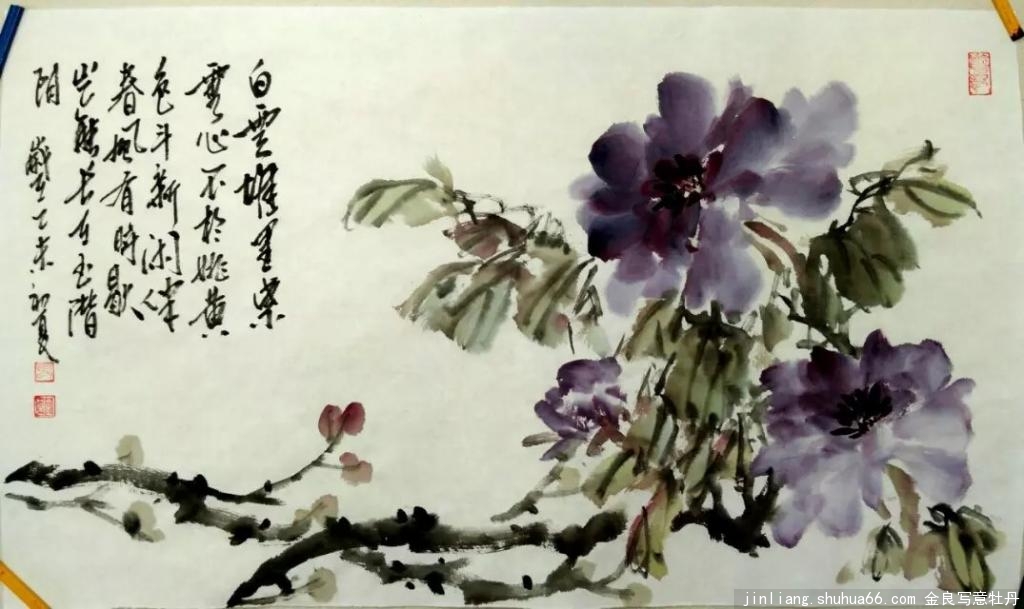 白雲堆里紫
霞心不於姚黄
色斗新闲伴
春風有時歇
岂能长在玉階
阴 歲在乙未初夏
jinliang.shuhua66.com 金良写意牡丹